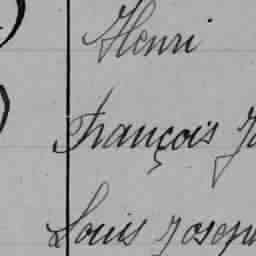 Henri
François
Louis Joseph